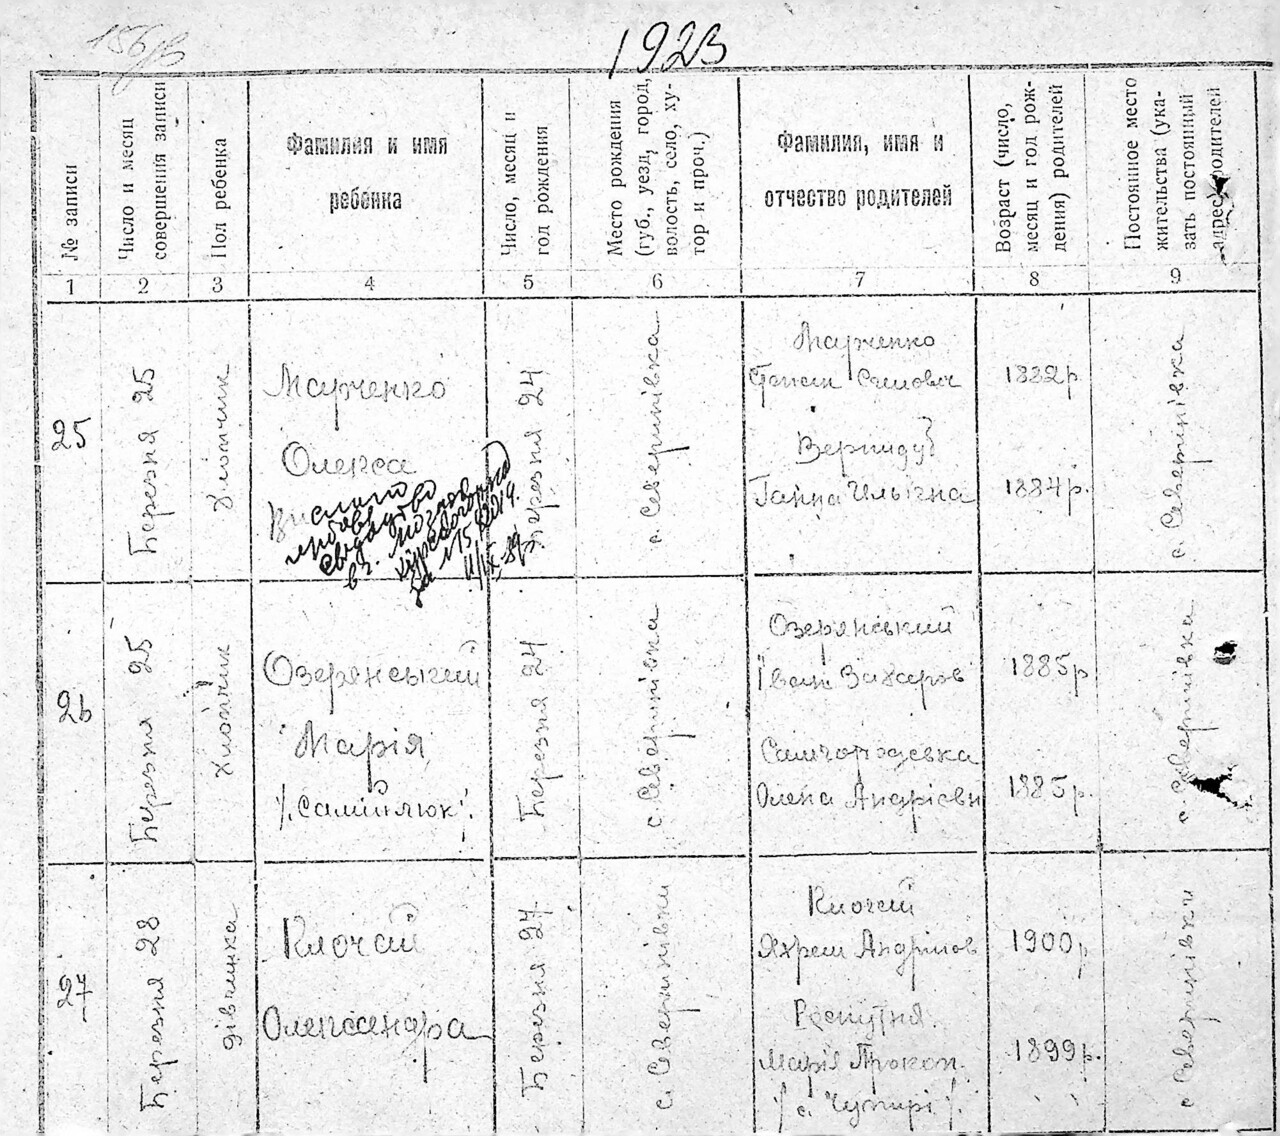 1923
№ записи
Число и месяц
совершения записи
Пол ребенка
Фамилия и имя
ребенка
Число, месяц и
год рождения
Место рождения
(губ., уезд, город,
волость, село, ху-
тор и проч.)
Фамилия, имя и
отчество родителей
Возраст (число,
месяц и год рож-
дения) родителей
Постоянное место
жительства (ука-
зать постоянный
адрес родителей
1 2 3 4 5 6 7 8 9
25
Березня 25
Хлопчик
Марченко
Олекса
свідоцтво
Березня 24
с. Северинівка
Марченко
Вернидуб
Ганна Ильїчна
1882р.
1884р.
с. Северинівка
26
Березня 25
Хлопчик
Озерянський
Марія
/.Самійлюк/.
Березня 24
с. Северинівка
Озерянський
Іван Захаров
Самгородевка
Олена Андрієвн
1885р
1885р.
с. Северинівка
27
Березня 28
дівчинка
Клочай
Олександра
Березня 27
с. Северинівки
Клочай
Яхрем Андріїков
Роспутня
Марія Прокоп.
1900р
1899р.
с Северинівки